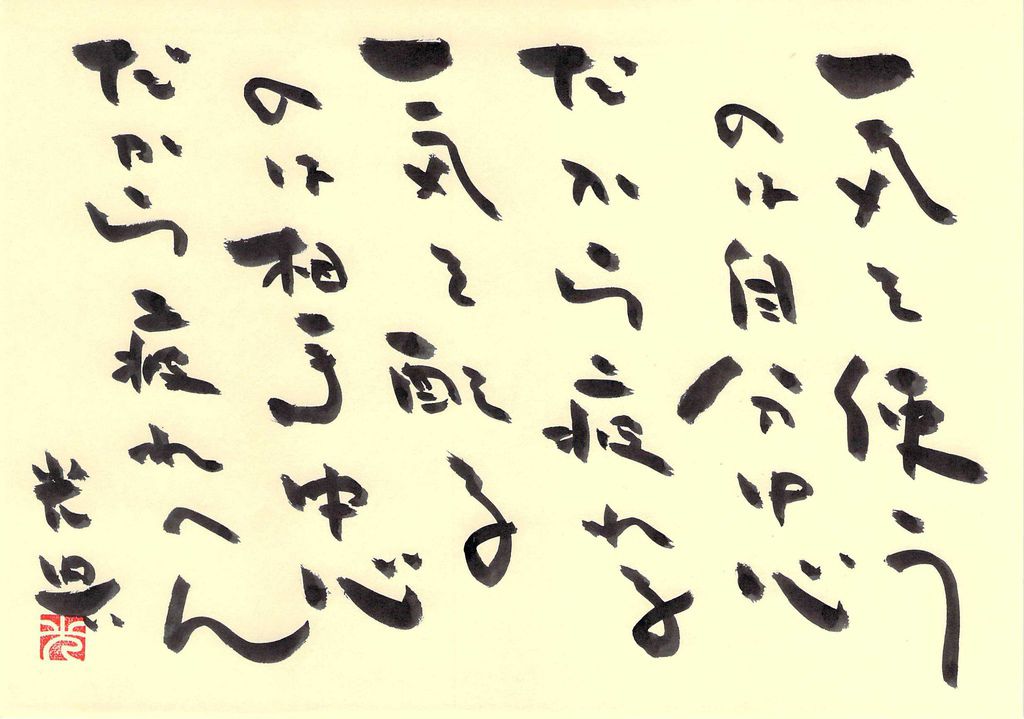 気を使う
のは自分中心
だから疲れる
気を配る
のは相手中心
だから疲れへん
光